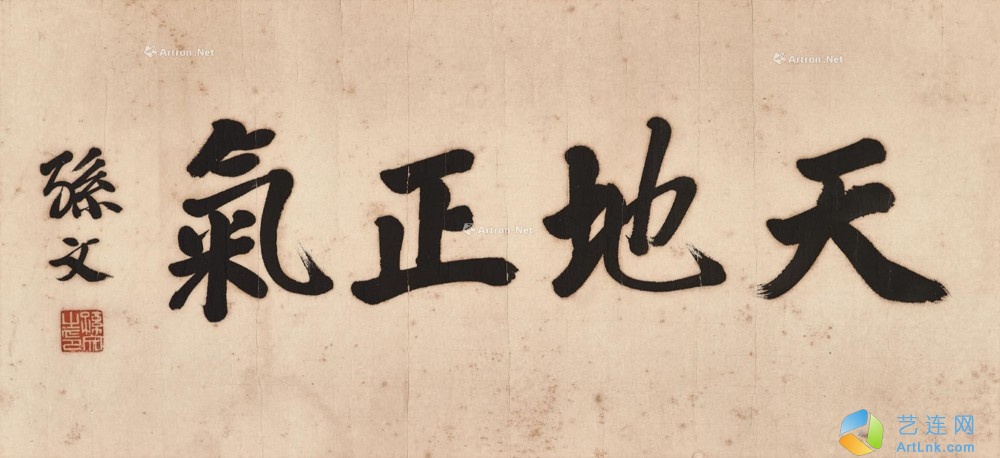 天地正氣
孫文
孫文之印
Artron.Net
Artron.Net
Artron.Net
艺连网
ArtLnk.com